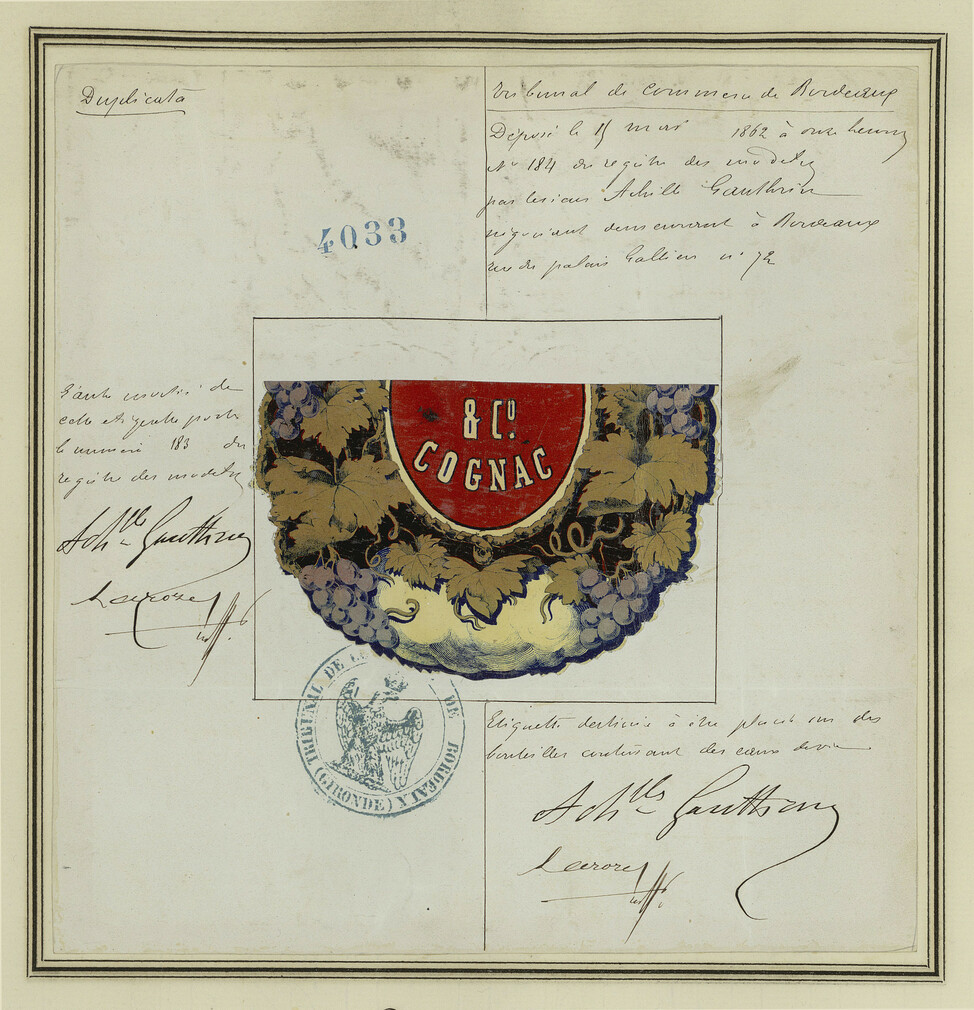 Duplicata
4033
Tribunal de Commerce de Bordeaux
Déposé le 15 mai 1862 à onze heures
N° 184 du registre des modèles
par le sieur Achille Gauthier
négociant demeurant à Bordeaux
rue du palais Gallien n° 72
& Co.
COGNAC
L'autre moitié de
cette etiquette porte
le numéro 183 du
registre des modeles
Achlle Gauthier
Lacroze
TRIBUNAL DE DE BORDEAUX
(GIRONDE)
Etiquette destinée à être placée sur des
bouteilles contenant des eaux de vie
Achlle Gauthier
Lacroze